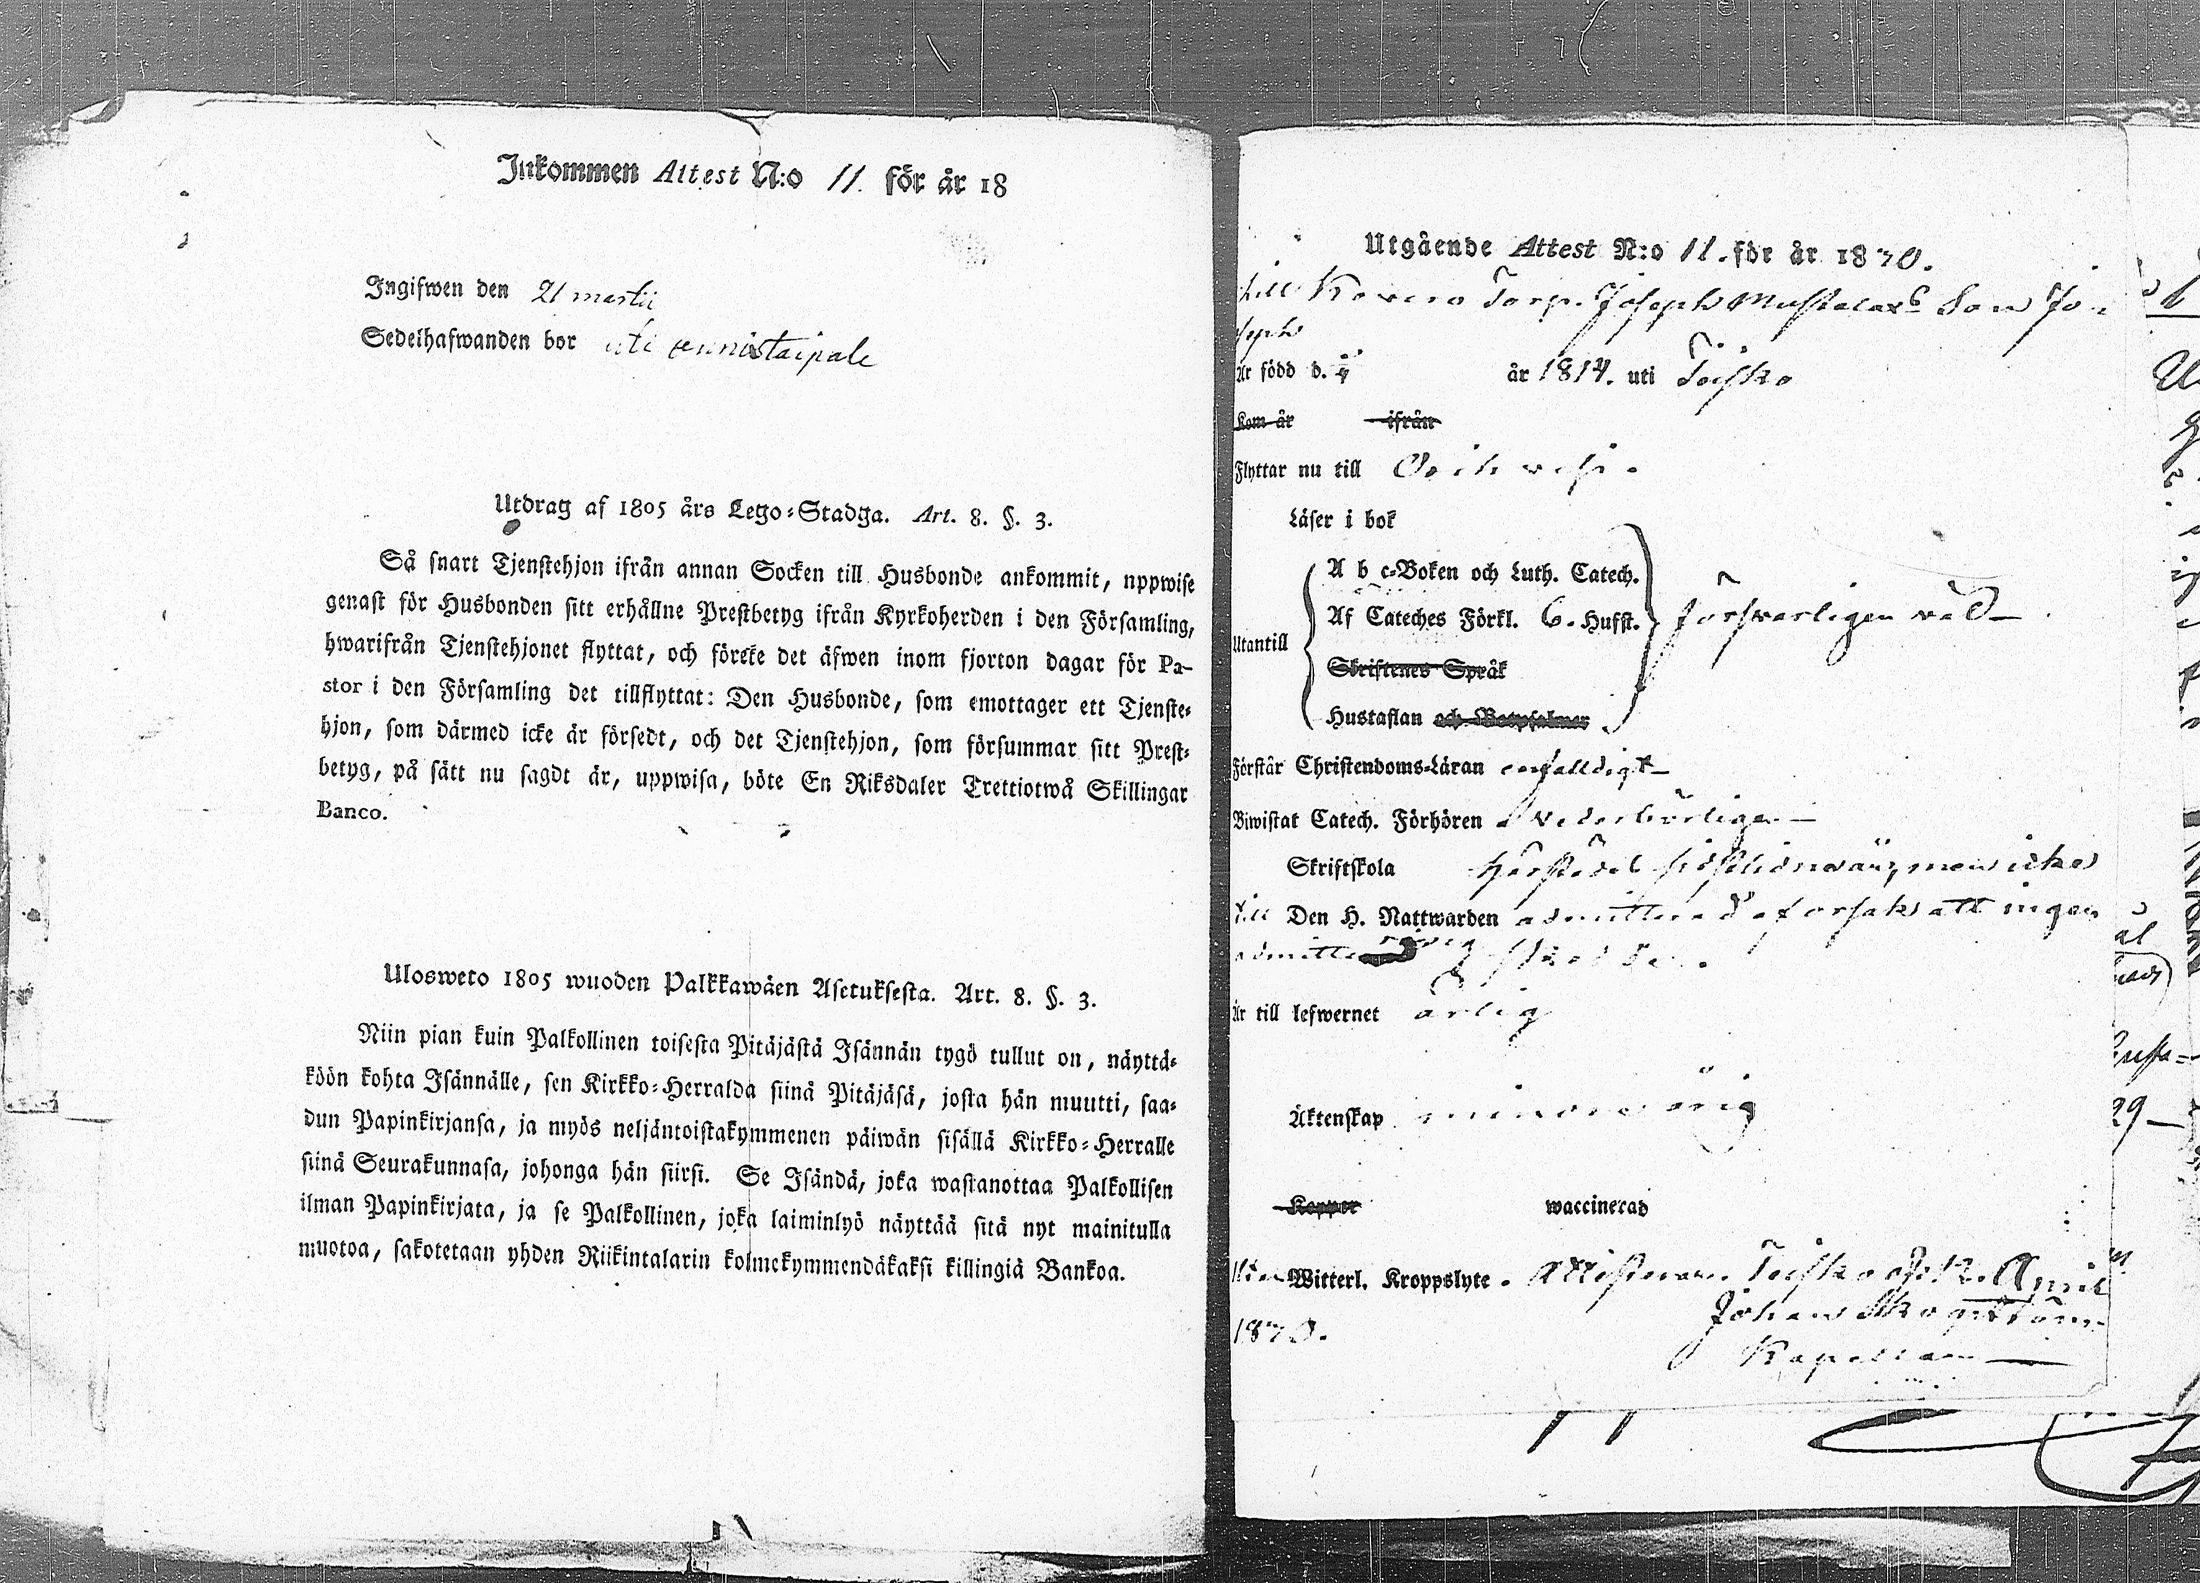 Inkommen Attest N:o 11. för år 18
Ingifwen den 21 martii
Sedelhafwanden bor uti
Utdrag af 1805 års Lego-Stadga. Art. 8. §. 3.
Så snart Tjenstehjon ifrån annan Socken till Husbonde ankommit, uppwise
genast för Husbonden sitt erhållne Prestbetyg ifrån Kyrkoherden i den Församling,
hwarifrån Tjenstehjonet flyttat, och förete det äfwen inom fjorton dagar för Pa-
stor i den Församling det tillflyttat: Den Husbonde, som emottager ett Tjenste-
hjon, som därmed icke är försedt, och det Tjenstehjon, som försummar sitt Prest-
betyg, på sätt nu sagdt är, uppwisa, böte En Riksdaler Trettiotwå Skillingar
Banco.
Ulosweto 1805 wuoden Palkkawäen Asetuksesta. Art. 8. §. 3.
Niin pian kuin Palkollinen toisesta Pitäjästä Isännän tygö tullut on, näyttä-
köön kohta Isännälle, sen Kirkko-Herralda siinä Pitäjäsä, josta hän muutti, saa-
dun Papinkirjansa, ja myös neljäntoistakymmenen päiwän sisällä Kirkko-Herralle
siinä Seurakunnasa, johonga hän siirsi. Se Isändä, joka wastanottaa Palkollisen
ilman Papinkirjata, ja se Palkollinen, joka laiminlyö näyttää sitä nyt mainitulla
muotoa, sakotetaan yhden Riikintalarin kolmekymmendäkaksi killingiä Bankoa.
Utgående Attest N:o 11. för år 1830.
till Torp. Joseph Son Jo-
seph
Är född d. år 1814. uti Teisko
Kom år ifrån
Flyttar nu till Orihvesi.
Läser i bok
A b c-Boken och Luth. Catech.
Af Cateches Förkl. 6. Hufst. försvarligen väl
Utantill
Skriftenes Språk
Hustaflan och Botpsalmer
Förstår Christendoms-Läran enfaldigt
Biwistat Catech. Förhören vederbörligen
Skriftskola men icke
till Den H. Nattwarden admitterad af orsak att ingen
skedde.
Är till lefwernet ärlig
Äktenskap minorenig
Koppor waccinerad
Witterl. Kroppslyte. Attesterar. Teisko d. 12. April
1830. Johan
Kapellan